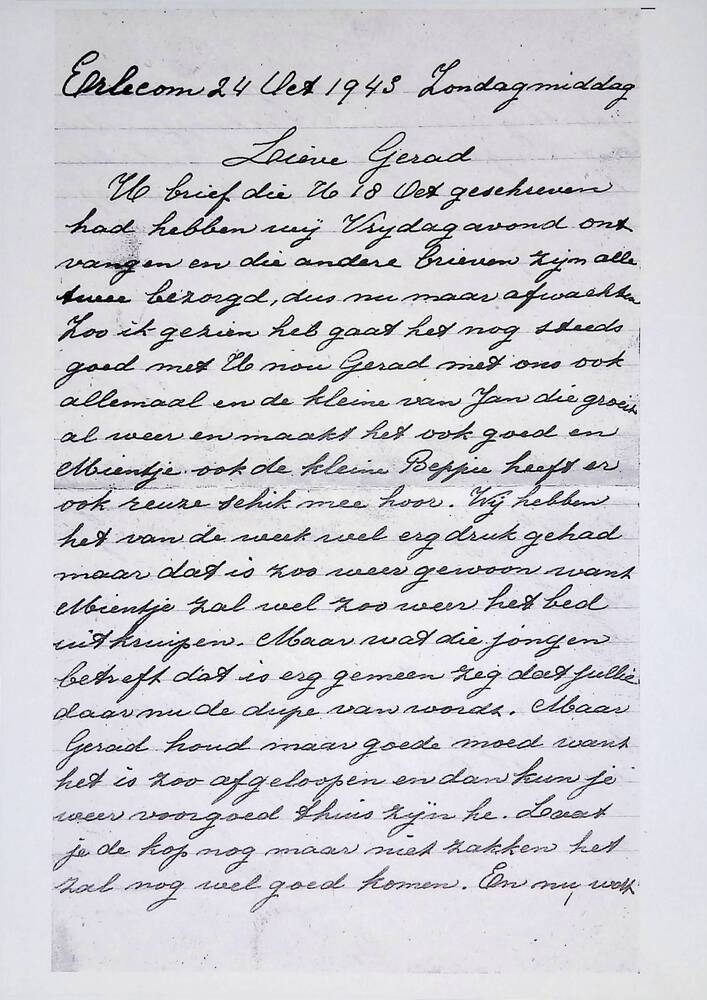 Erlecom 24 Oct 1943 Zondagmiddag
Lieve Gerad
U brief die U 18 Oct geschreven
had hebben wij Vrijdagavond ont
vangen en die andere brieven zijn alle
twee bezorgd, dus nu maar afwachten
Zoo ik gezien heb gaat het nog steeds
goed met U nou Gerad met ons ook
allemaal en de kleine van Jan die groeit
al weer en maakt het ook goed en
Mientje ook de kleine Beppie heeft er
ook reuze schik mee hoor. Wij hebben
het van de week wel erg druk gehad
maar dat is zoo weer gewoon want
Mientje zal wel zoo weer het bed
uitkruipen. Maar wat die jongen
betreft dat is erg gemeen zeg dat jullie
daar nu de dupe van wordt. Maar
Gerad houd maar goede moed want
het is zoo afgeloopen en dan kun je
weer voorgoed thuis zijn he. Laat
je de kop nog maar niet zakken het
zal nog wel goed komen. En nu, wat